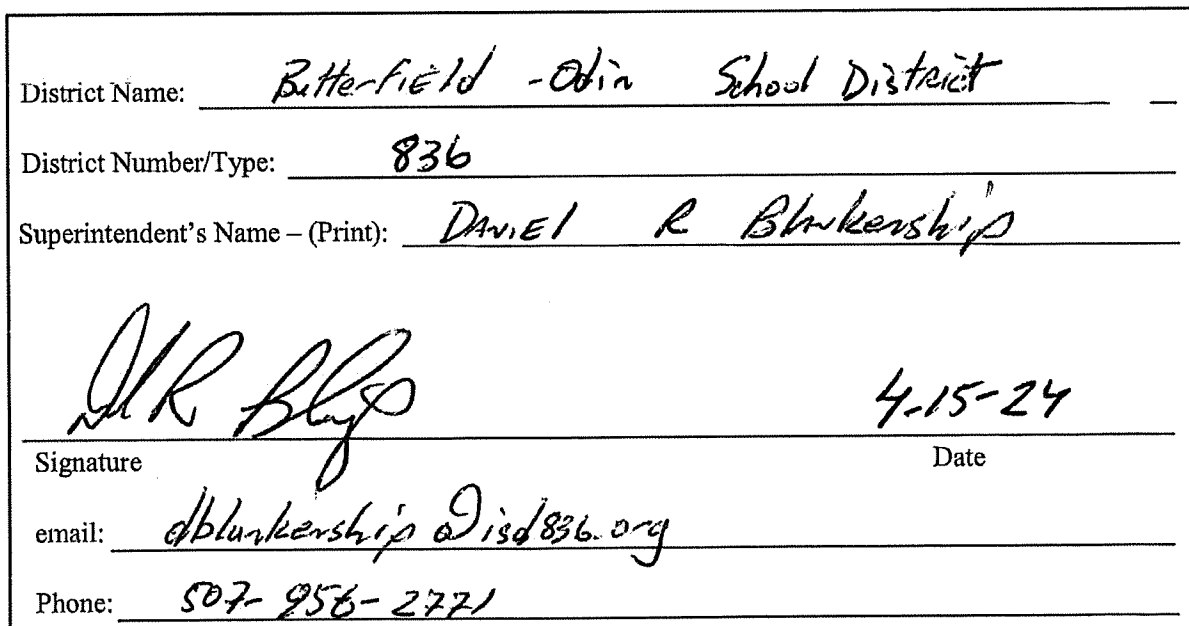 District Name: Butterfield - Odin School District
District Number/Type: 836
Superintendent's Name – (Print): DANIEl R Blankenship
4-15-24
Signature Date
email: dblankenship@isd836.org
Phone: 507-956-2771